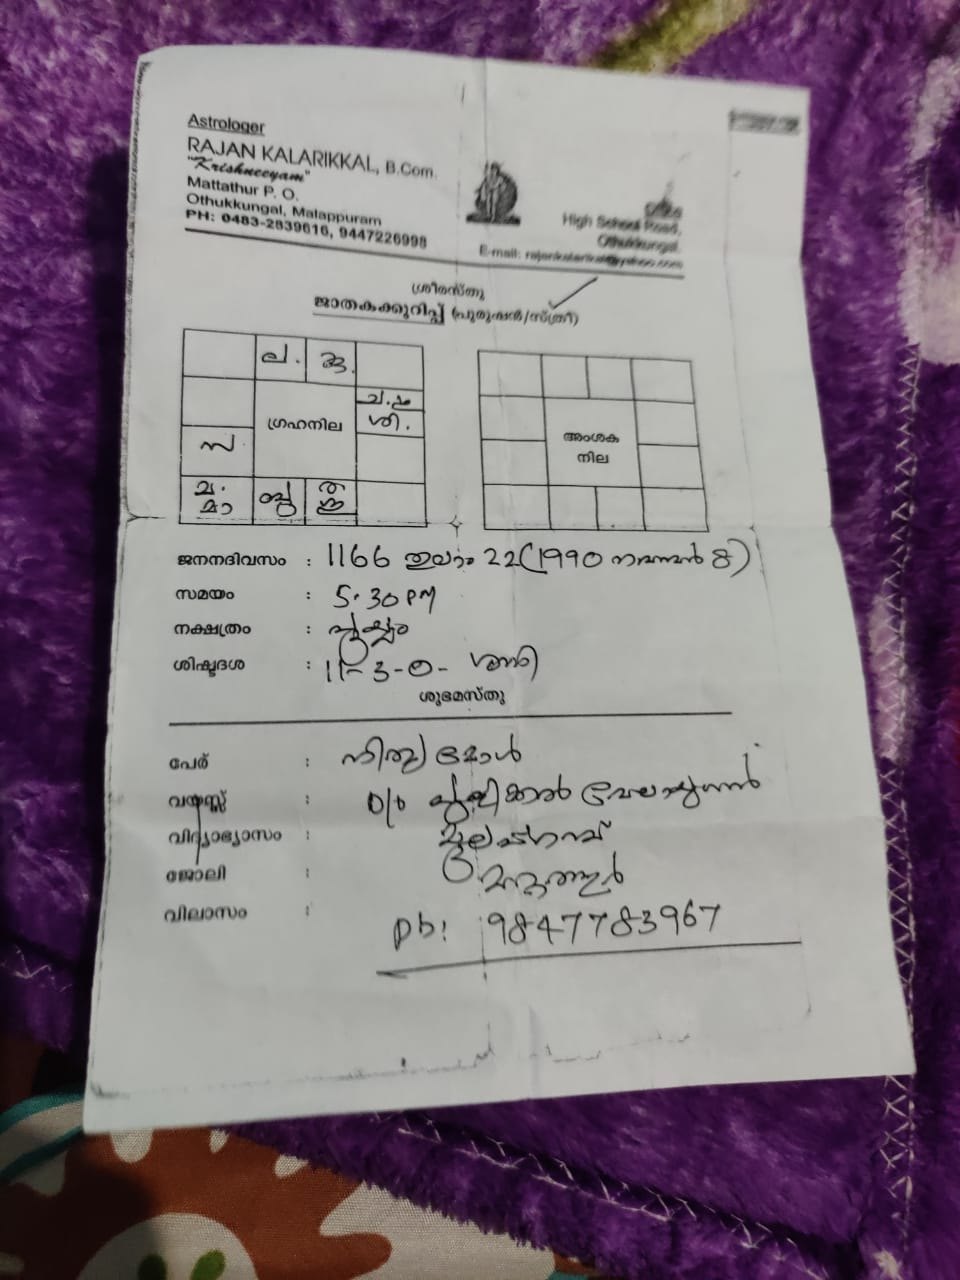 Astrologer
RAJAN KALARIKKAL, B.Com.
"Krishneeyam"
Mattathur P. O.
Othukkungal, Malappuram
PH: 0483-2839616, 9447226998
High School Road,
Othukkungal.
E-mail: rajankalarikal@yahoo.com
ശ്രീരസ്തു
ജാതകക്കുറിപ്പ് (പുരുഷൻ/സ്ത്രീ)
ല.
ശി.
ഗ്രഹനില
സ
മാ
അംശക
നില
ജനനദിവസം : 1166 തുലാം 22 (1990 നവമ്പർ 8)
സമയം : 5.30 PM
നക്ഷത്രം : പൂയ്യം
ശിഷ്ടദശ : 11-3-0- ശനി
ശുഭമസ്തു
പേര് : മോൾ
വയസ്സ് : D/o വേലായുധൻ
വിദ്യാഭ്യാസം :
ജോലി : മറ്റത്തൂർ
വിലാസം :
Ph: 9847783967